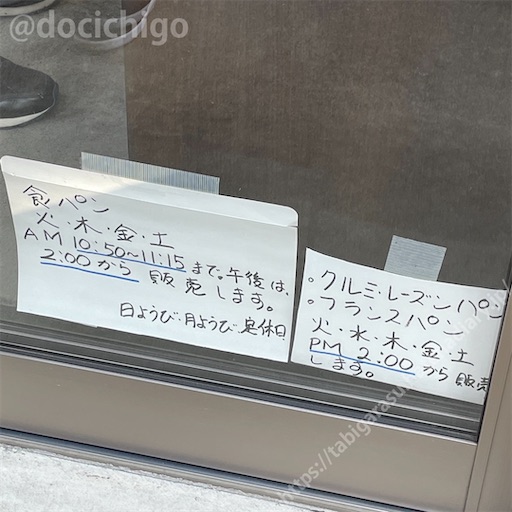 @docichigo
食パン
火・木・金・土
AM 10:50〜11:15まで。午後は、
2:00から 販売します。
日ようび・月ようび・定休日
。クルミ・レーズンパン
。フランスパン
火・水・木・金・土
PM 2:00から販売
します。